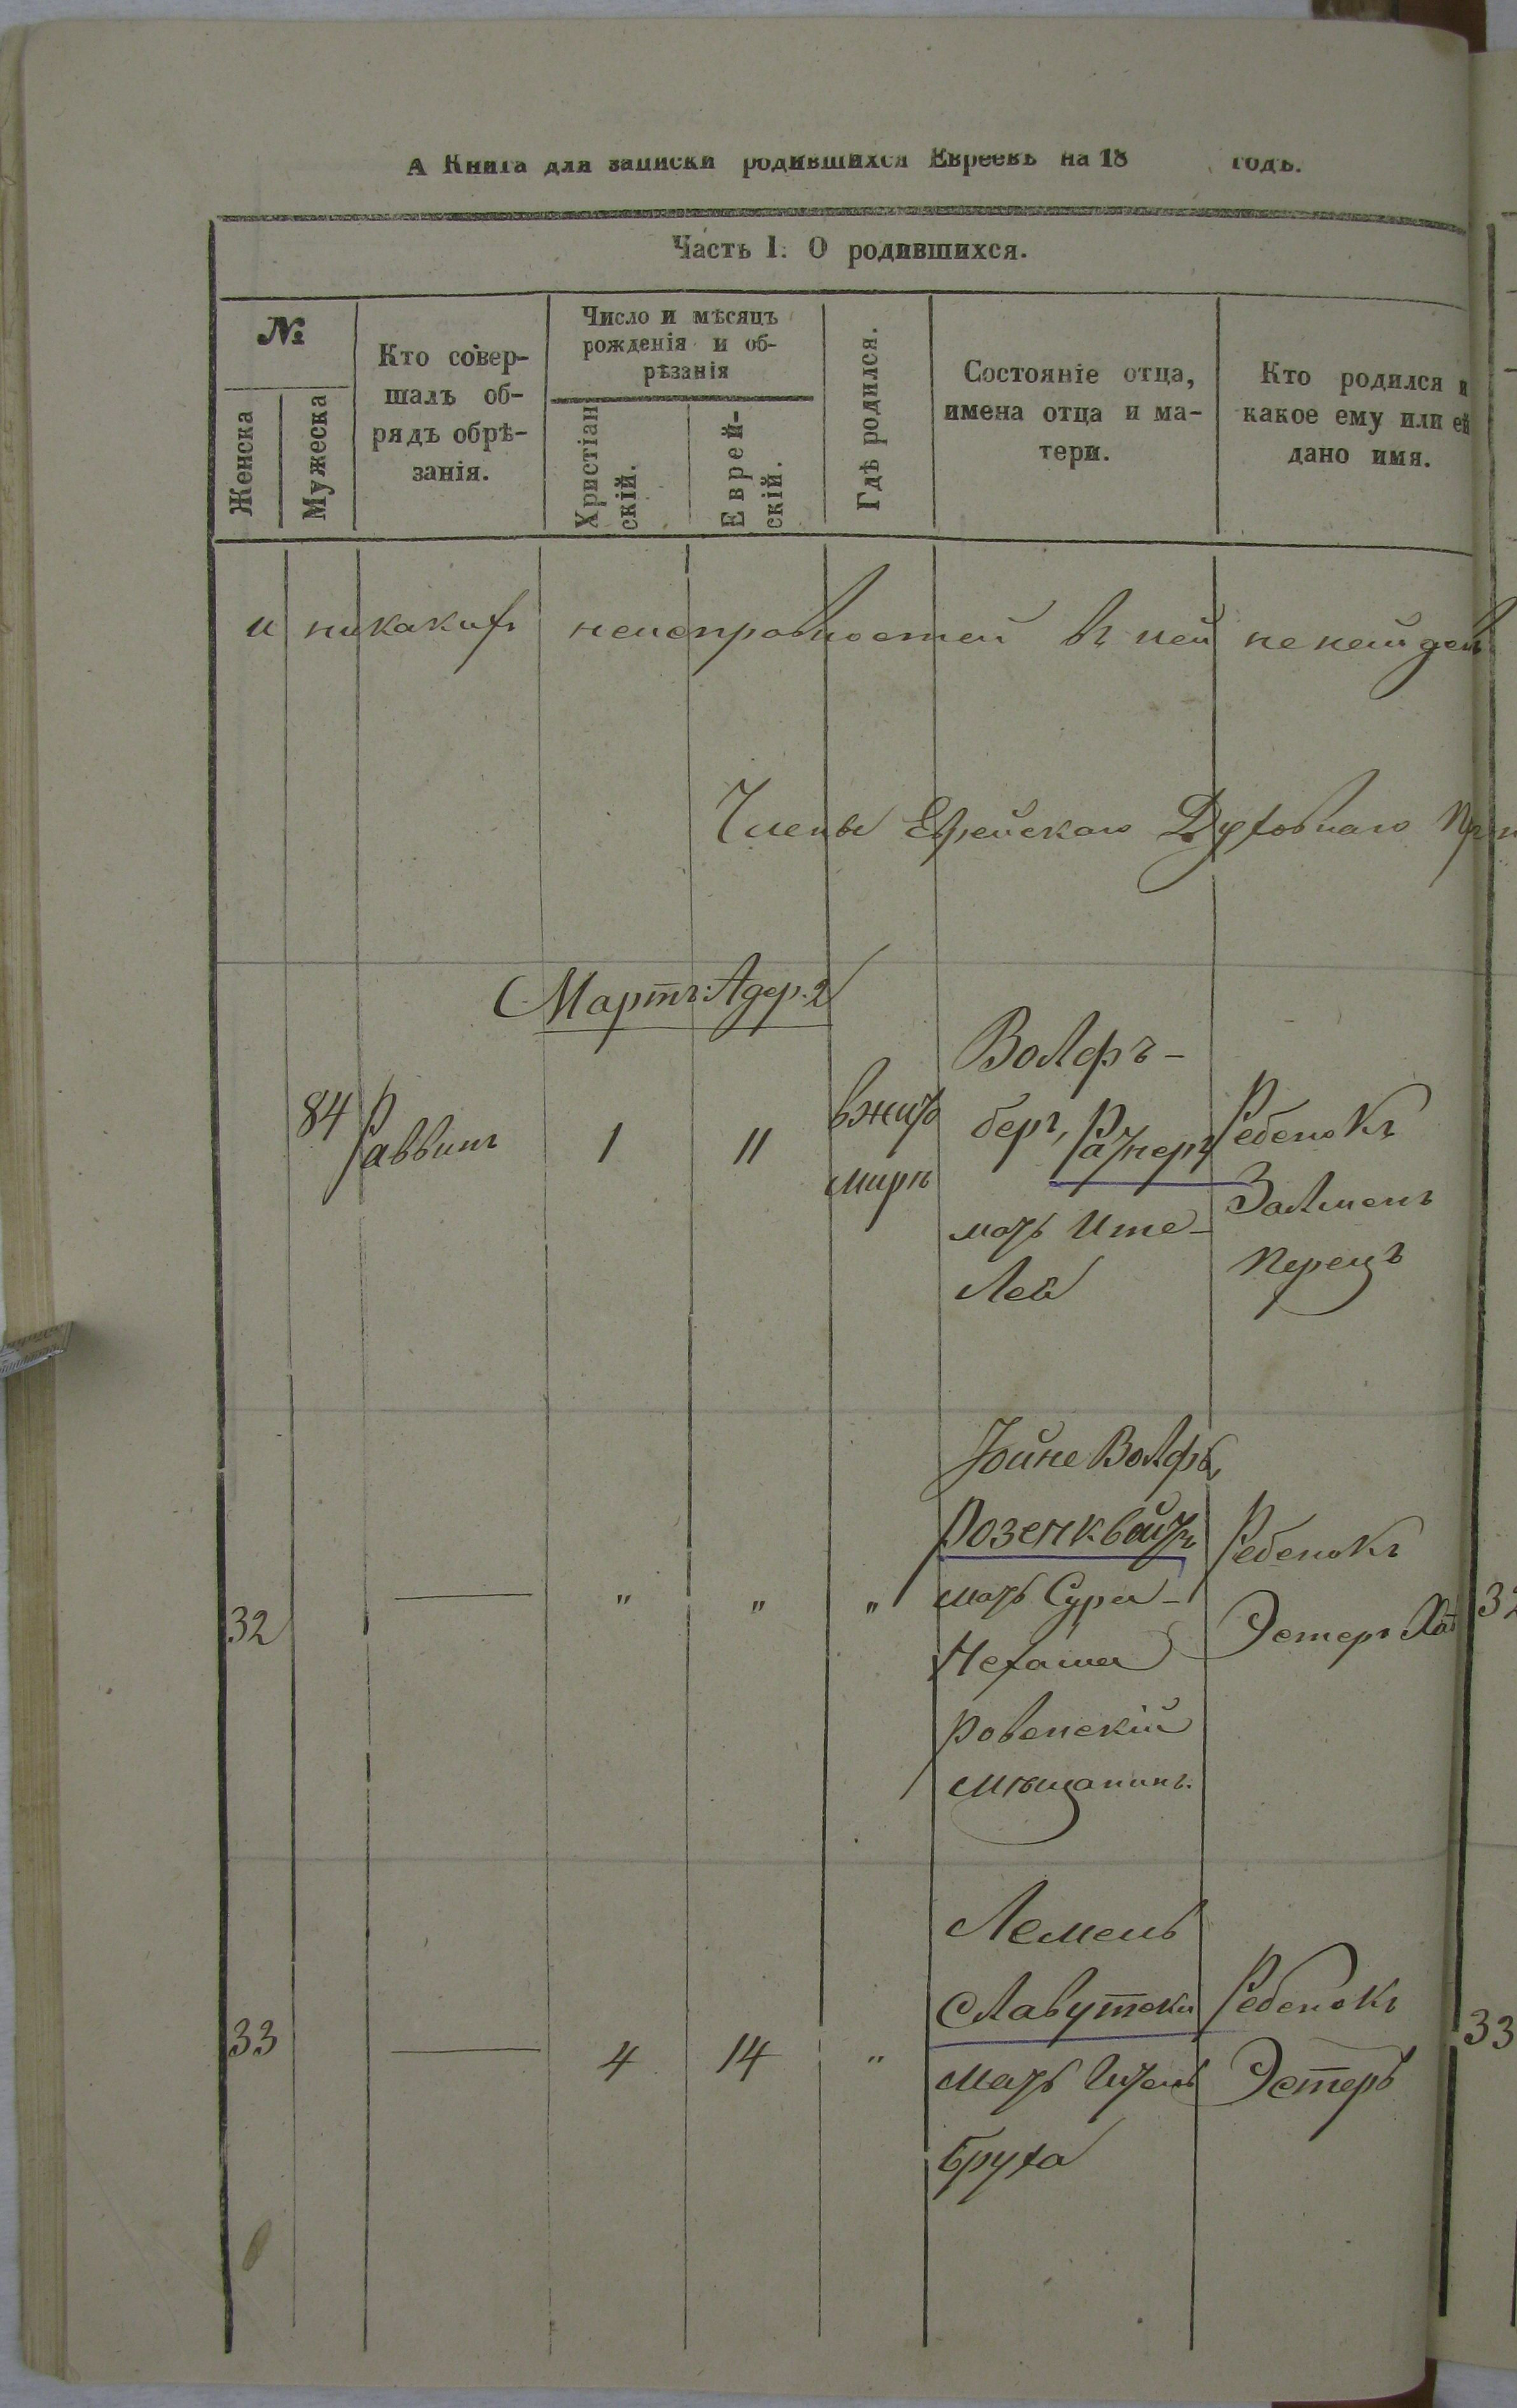 А Книга для записки родившихся Евреевъ на 18 годъ.
Часть I. О родившихся.
№
Женска
Мужеска
Кто совер-
шалъ об-
рядъ обрѣ-
занія.
Число и мѣсяцъ
рожденія и об-
рѣзанія
Христіан
скій.
Еврей-
скій.
Гдѣ родился.
Состояніе отца,
имена отца и ма-
тери.
Кто родился и
какое ему или ей
дано имя.
и никакихъ неисправностей въ ней не найдено
Члены Еврейскаго Духовнаго
Мартъ. Адер. 2
84
Раввинъ
1
11
вжито
миръ
Волфъ-
берг, Ратнеръ
мать Ите-
Лея
Ребенокъ
Залменъ
Перецъ
32
"
"
"
Йойне Волфъ
Розенквайтъ
мать Сура-
Нехама
Ровенскій
мѣщанинъ.
Ребенокъ
Эстеръ
33
4
14
"
Лемель
Славутски
мать
Бруха
Ребенокъ
Эстеръ
33